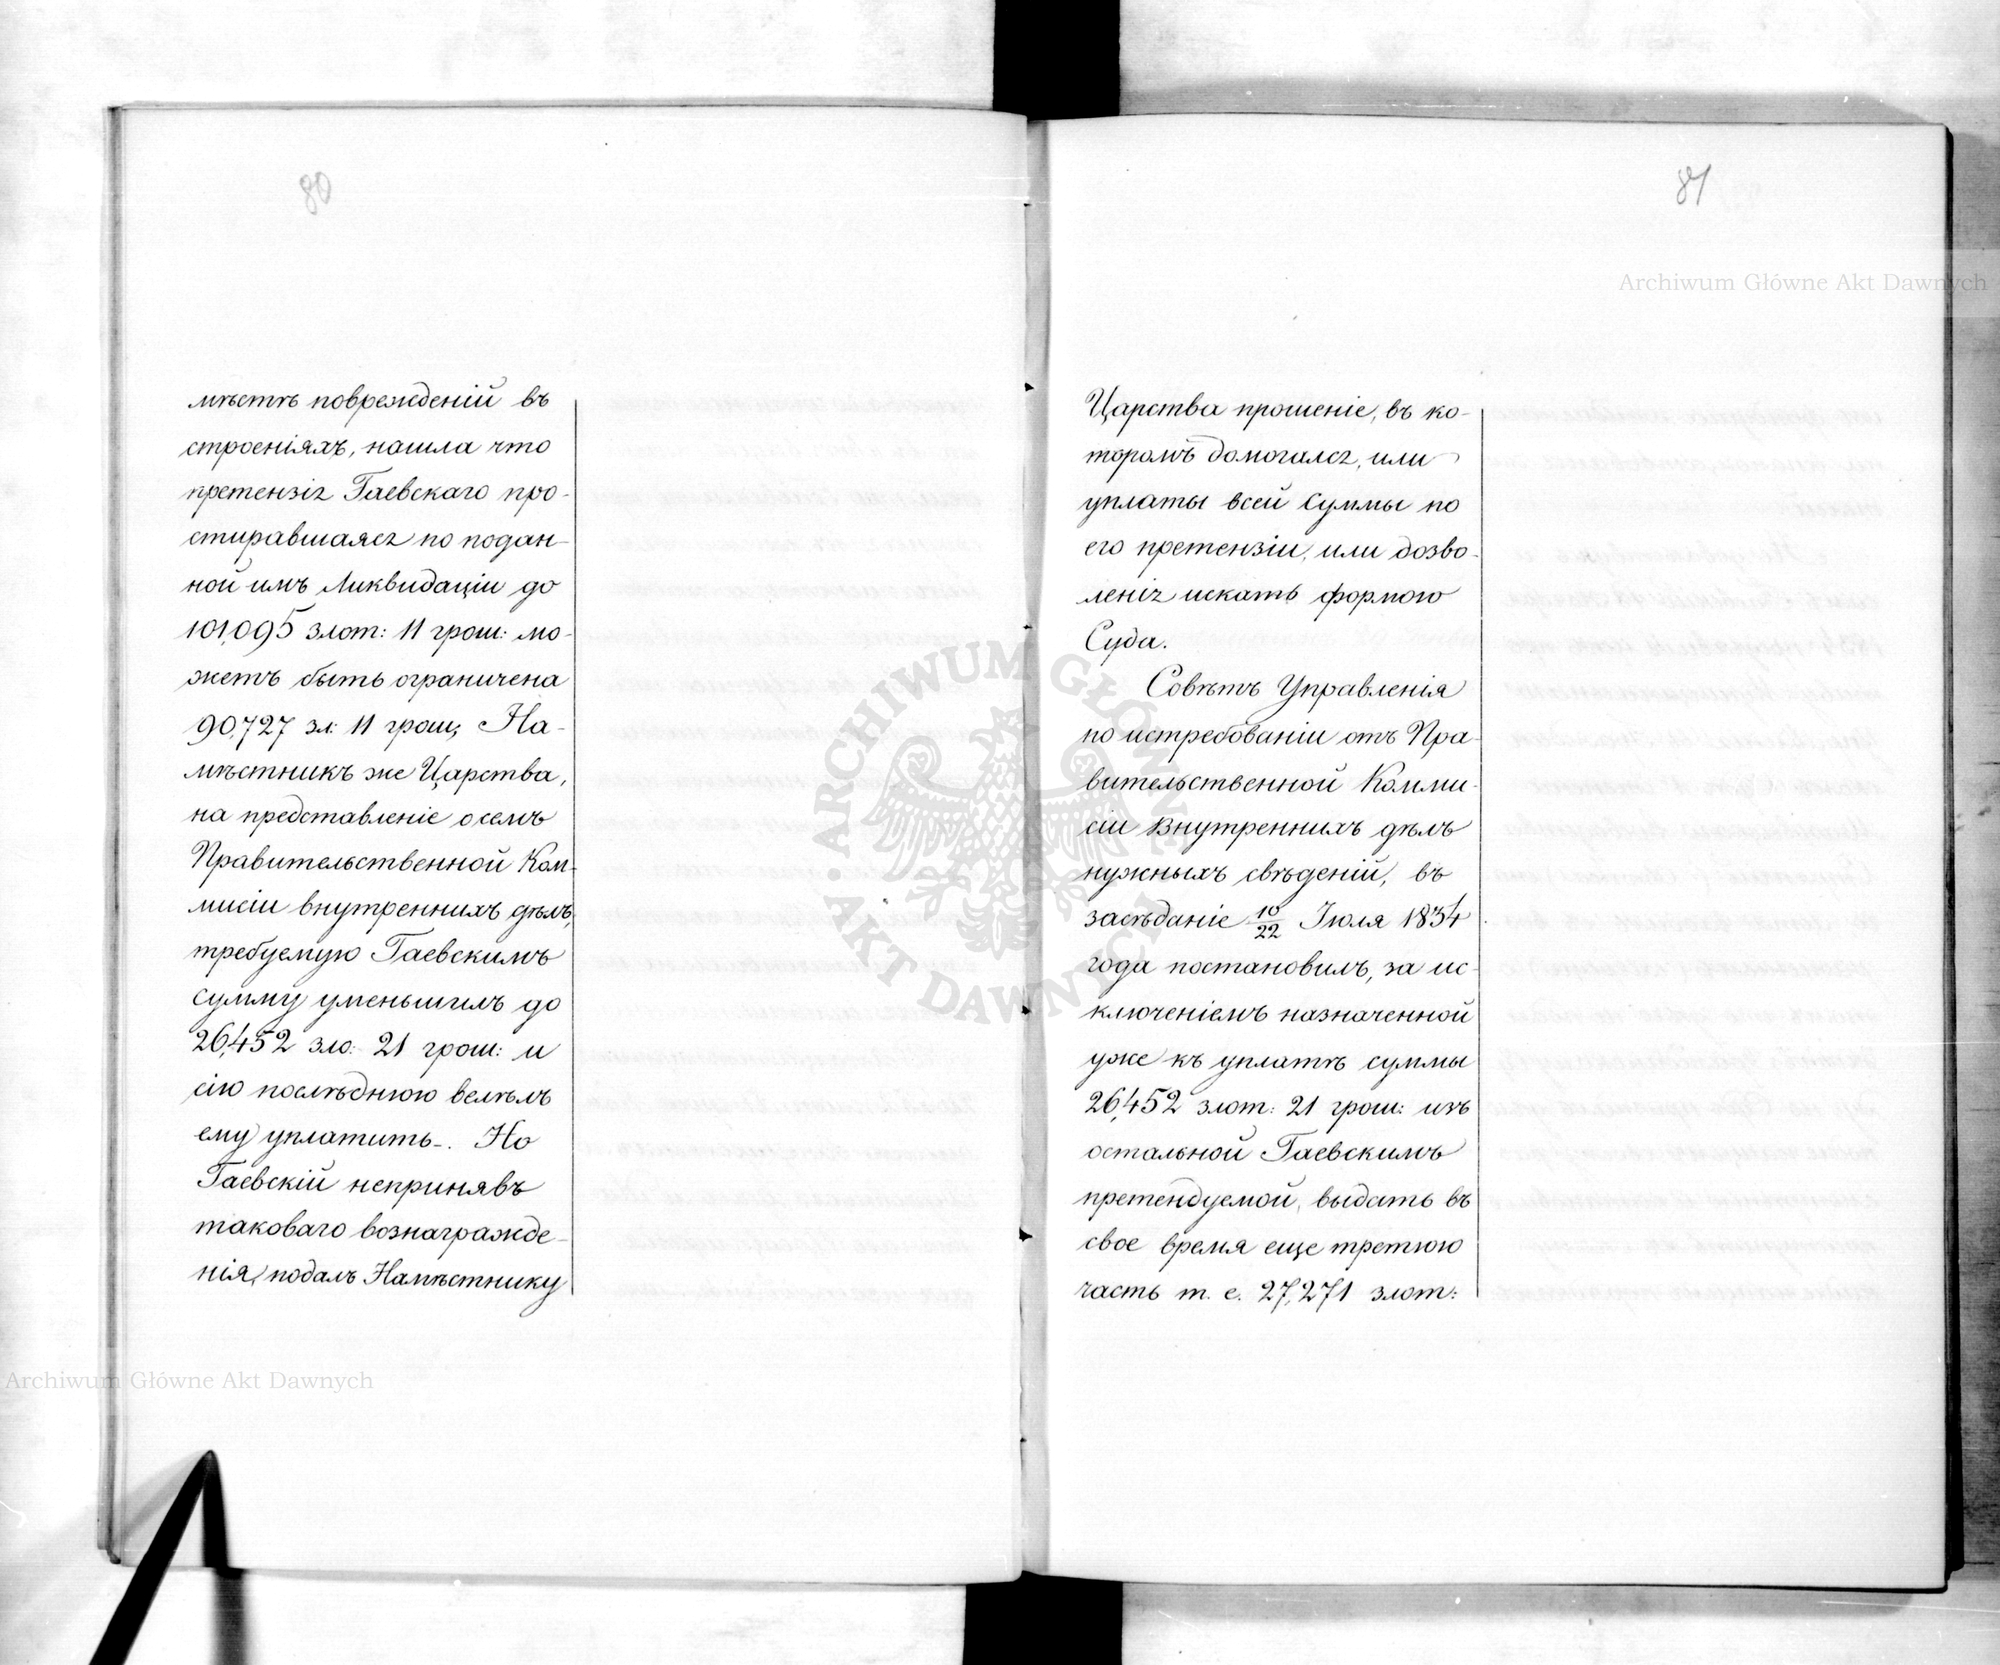 80
мѣстѣ поврежденій въ
строеніяхъ, нашла что
претензія Гаевскаго про-
стиравшаяся по подан-
ной имъ ликвидаціи до
101,095 злот: 11 грош: мо-
жетъ быть ограничена
90,727 зл: 11 грош; На-
мѣстникъ же Царства,
на представленіе о семъ
Правительственной Ком-
мисіи внутреннихъ дѣлъ,
требуемую Гаевскимъ
сумму уменьшилъ до
26,452 зло: 21 грош: и
сію послѣднюю велѣлъ
ему уплатить-. Но
Гаевскій непринявъ
таковаго вознагражде-
нія, подалъ Намѣстнику
81
Царства прошеніе, въ ко-
торомъ домогался, или
уплаты всей суммы по
его претензіи, или дозво-
ленія искать формою
Суда.
Совѣтъ Управленія
по истребованіи отъ Пра-
вительственной Комми-
сіи Внутреннихъ дѣлъ
нужныхъ свѣденій, въ
засѣданіе 10/22 Іюля 1834
года постановилъ, за ис-
ключеніемъ назначенной
уже къ уплатѣ суммы
26,452 злот: 21 грош: изъ
остальной Гаевскимъ
претендуемой, выдать въ
свое время еще третюю
часть т. е. 27,271 злот:
Archiwum Główne Akt Dawnych
ARCHIWUM GŁÓWNE · AKT DAWNYCH ·
Archiwum Główne Akt Dawnych